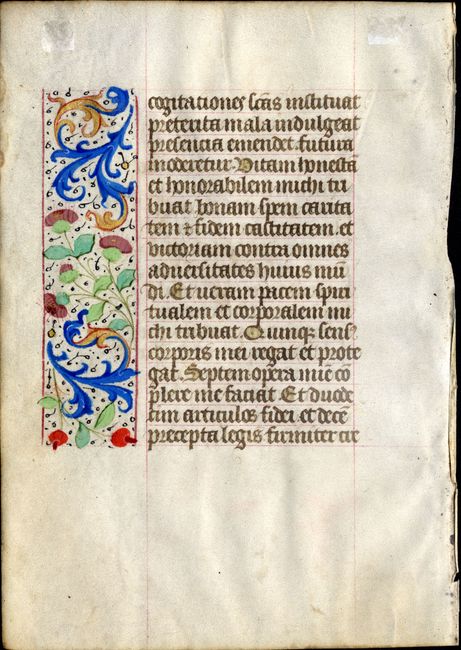 cogitationes sc̄as instituat
preterita mala indulgeat
presencia emendet. futura
moderetur. Vitam honestā
et honorabilem michi tri
buat. bonam spem carita
tem & fidem castitatem. et
victoriam contra omnes
aduersitates huius mū
di. Et ueram pacem spiri
tualem et corporalem mi
chi tribuat. Quinq sens
corporis mei regat et prote
gat. Septem opera mīe cō
plere me faciat. Et duode
cim articulos fidei et decē
precepta legis firmiter cre